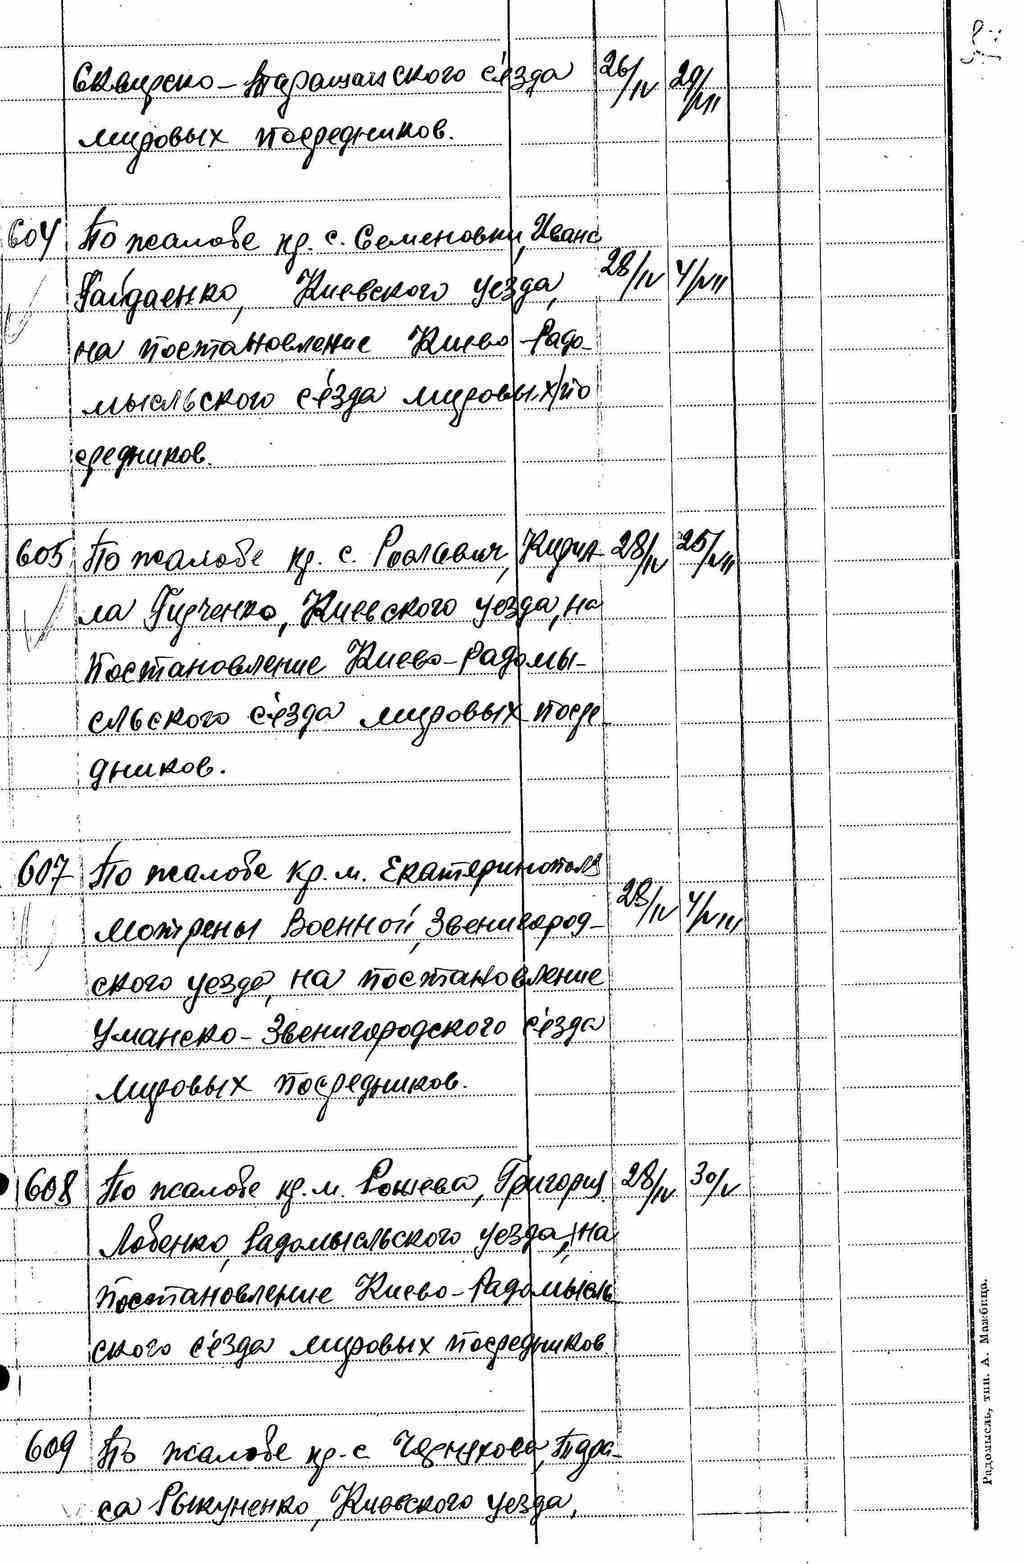 Сквирско-Таращанского с'езда 26/IV 29/VII
мировых посредников.
604 По жалобе кр. с. Семеновки, Ивана
Гайдаенко, Киевского уезда, 28/IV 4/VII
на постановление Киево-Радо-
мысльского с'езда мировых по
средников.
605 По жалобе кр. с. Рославич, Кирил- 28/IV 25/VII
ла Гирченко, Киевского уезда, на
постановление Киево-Радомы-
сльского с'езда мировых посре
дников.
607 По жалобе кр. м. Екатеринополя
Мотрены Военной, Звенигород- 28/IV 4/VIII
ского уезда, на постановление
Уманско-Звенигородского с'езда
мировых посредников.
608 По жалобе кр. м. Рожева, Григория 28/IV 30/V
Лобенко, Радомысльского уезда, на
постановление Киево-Радомысль
ского с'езда мировых посредников
609 По жалобе кр. с Черняхова, Тара-
са Рыкуненко, Киевского уезда,
Радомысль, тип. А. Мажбица.